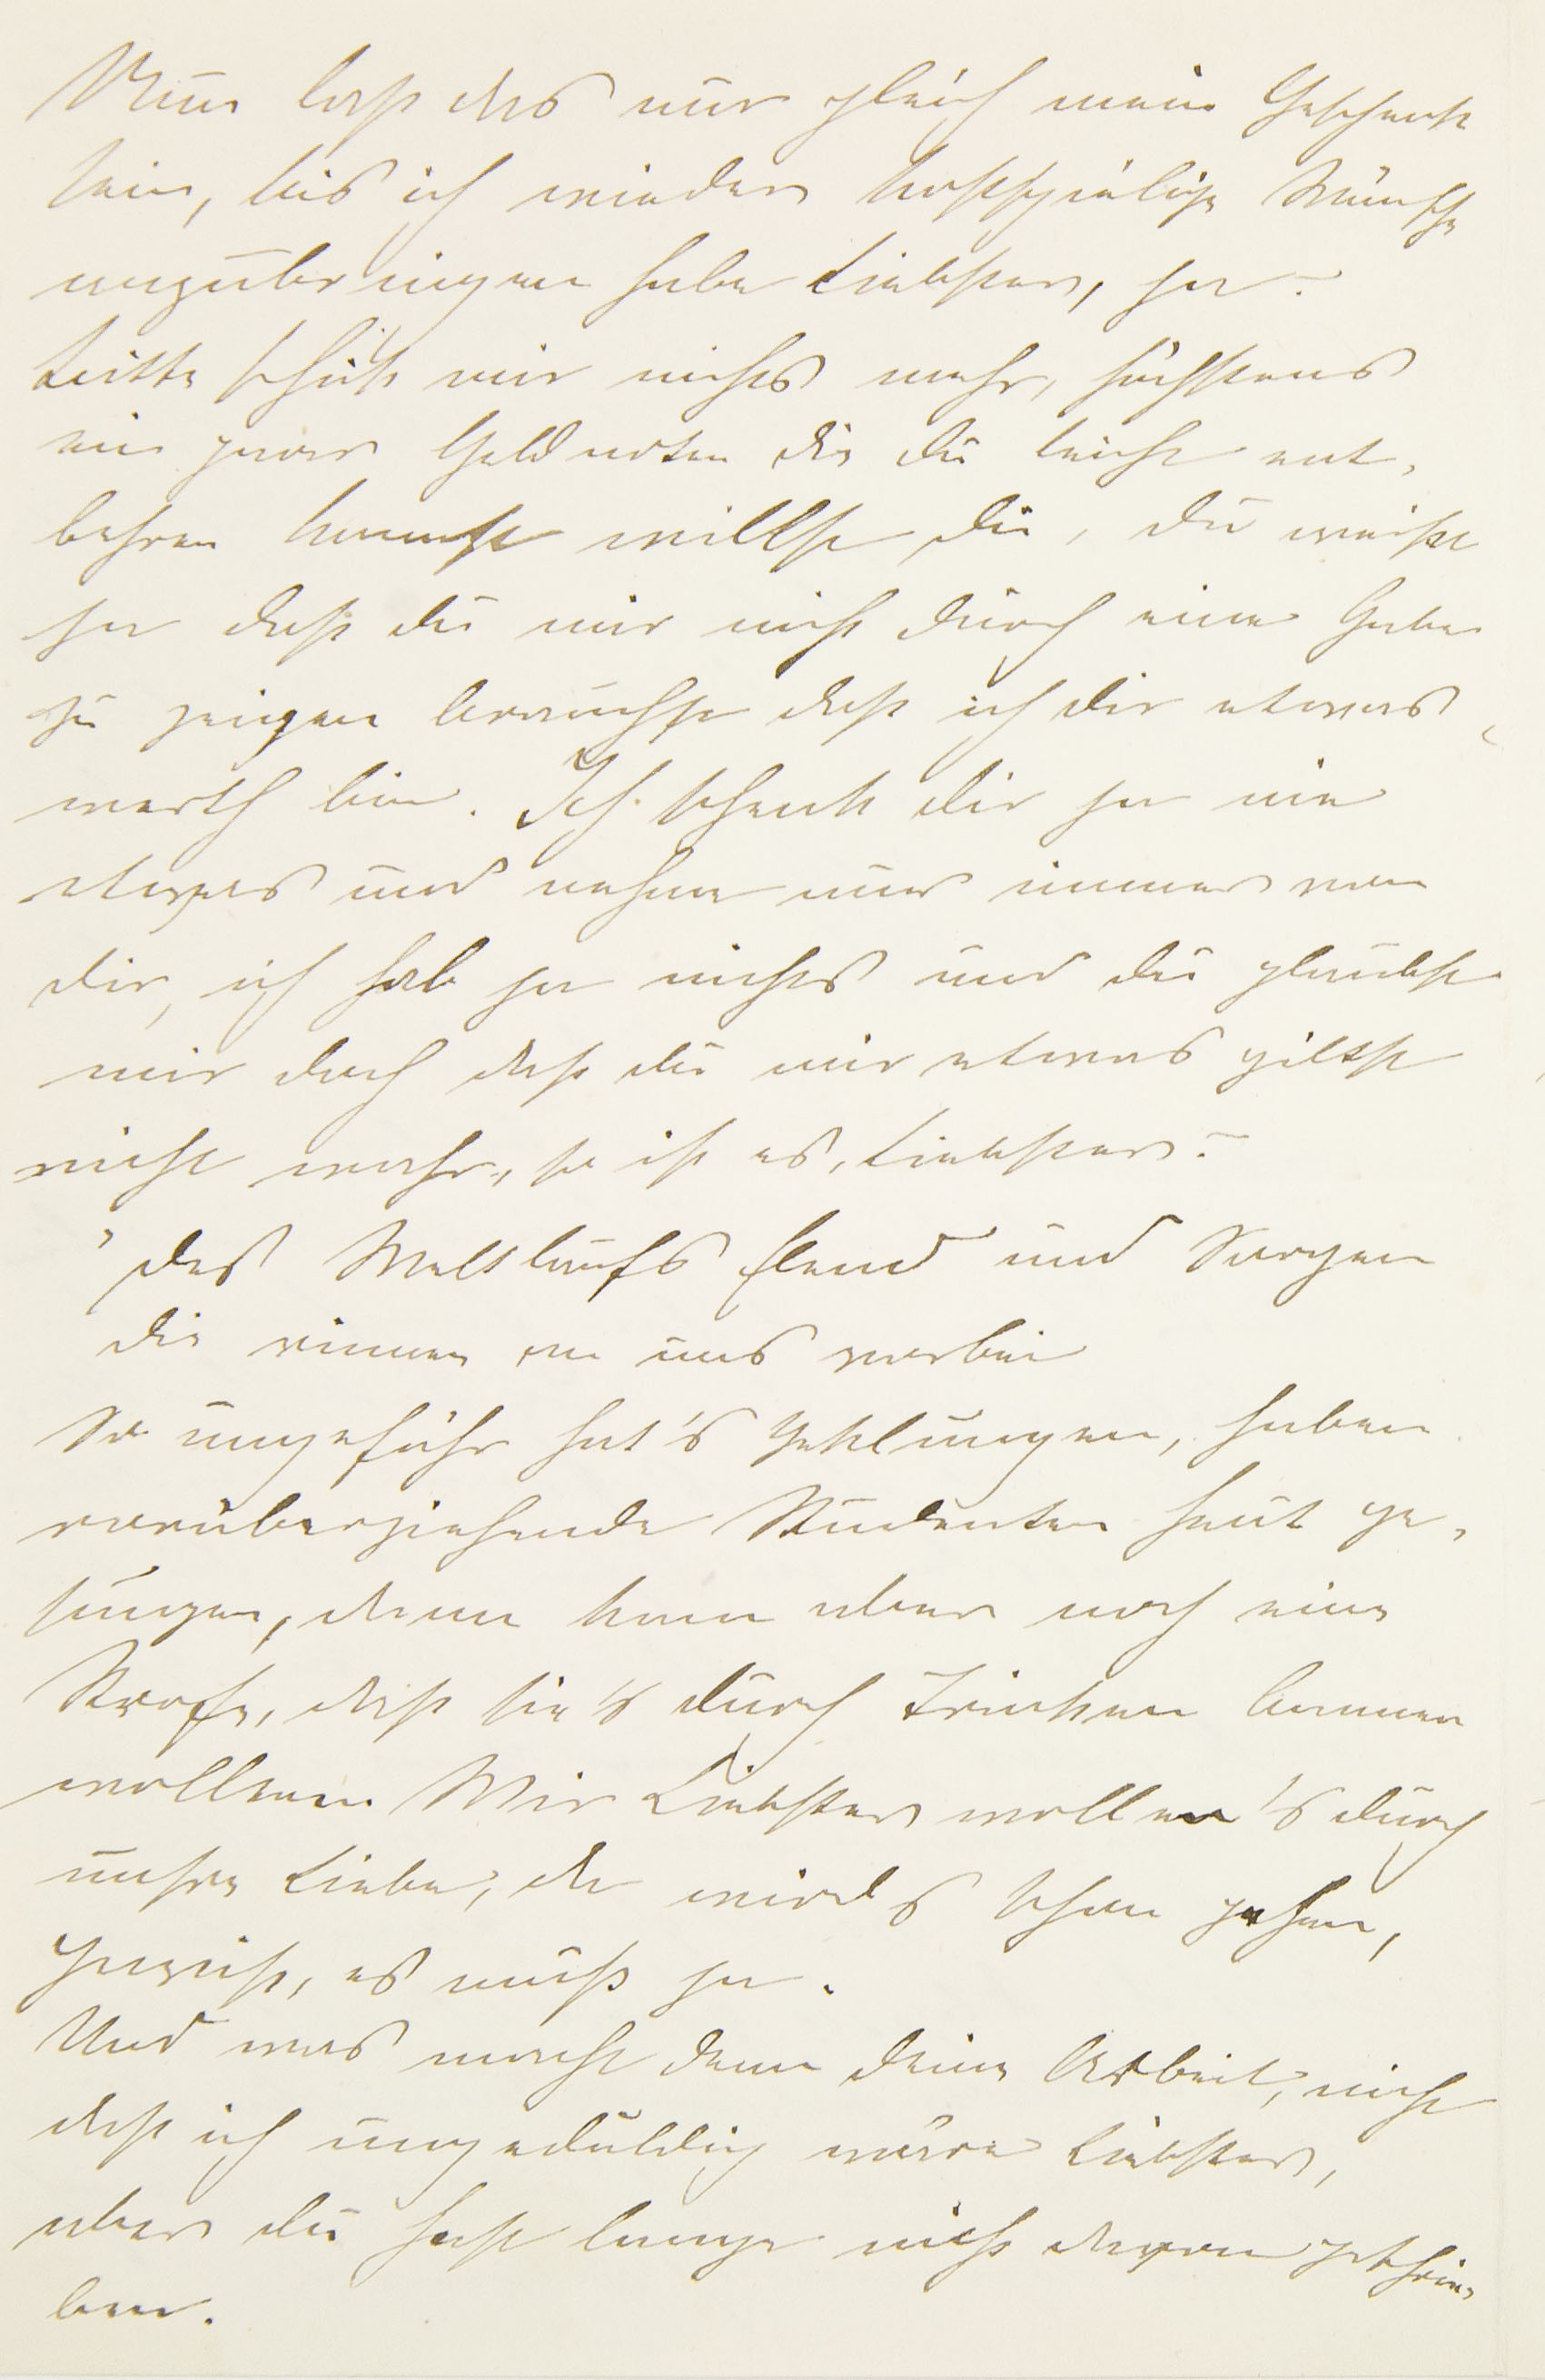 Nun laß das nur gleich mein Geschenk
sein, bis ich wieder kostspielige Wünsche
anzubringen habe Liebster, ja?
bitte schick mir nichts mehr, höchstens
ein paar Geldnoten die du leicht ent-
behren kannst willst du, du weißt
ja daß du mir nicht durch eine Gabe
zu zeigen brauchst daß ich dir etwas
werth bin. Ich schenk dir ja nie
etwas und nehme nur immer von
dir, ich hab ja nichts und du glaubst
mir doch daß du mir etwas giltst
nicht wahr, so ist es, Liebster?
„des Weltlaufs Elend und Sorgen
die rinnen an uns vorbei
So ungefähr hat's geklungen, haben
vorüberziehende Studenten heut ge-
sungen, dann kam aber noch eine
Strofe, daß sie's durch Trinken bannen
wollten. Wir Liebster wollen's durch
unsre Liebe, da wird's schon gehen,
gewiß, es muß ja.
Und was macht denn deine Arbeit, nicht
daß ich ungeduldig wäre Liebster,
aber du hast lange nicht davon geschrie-
ben.